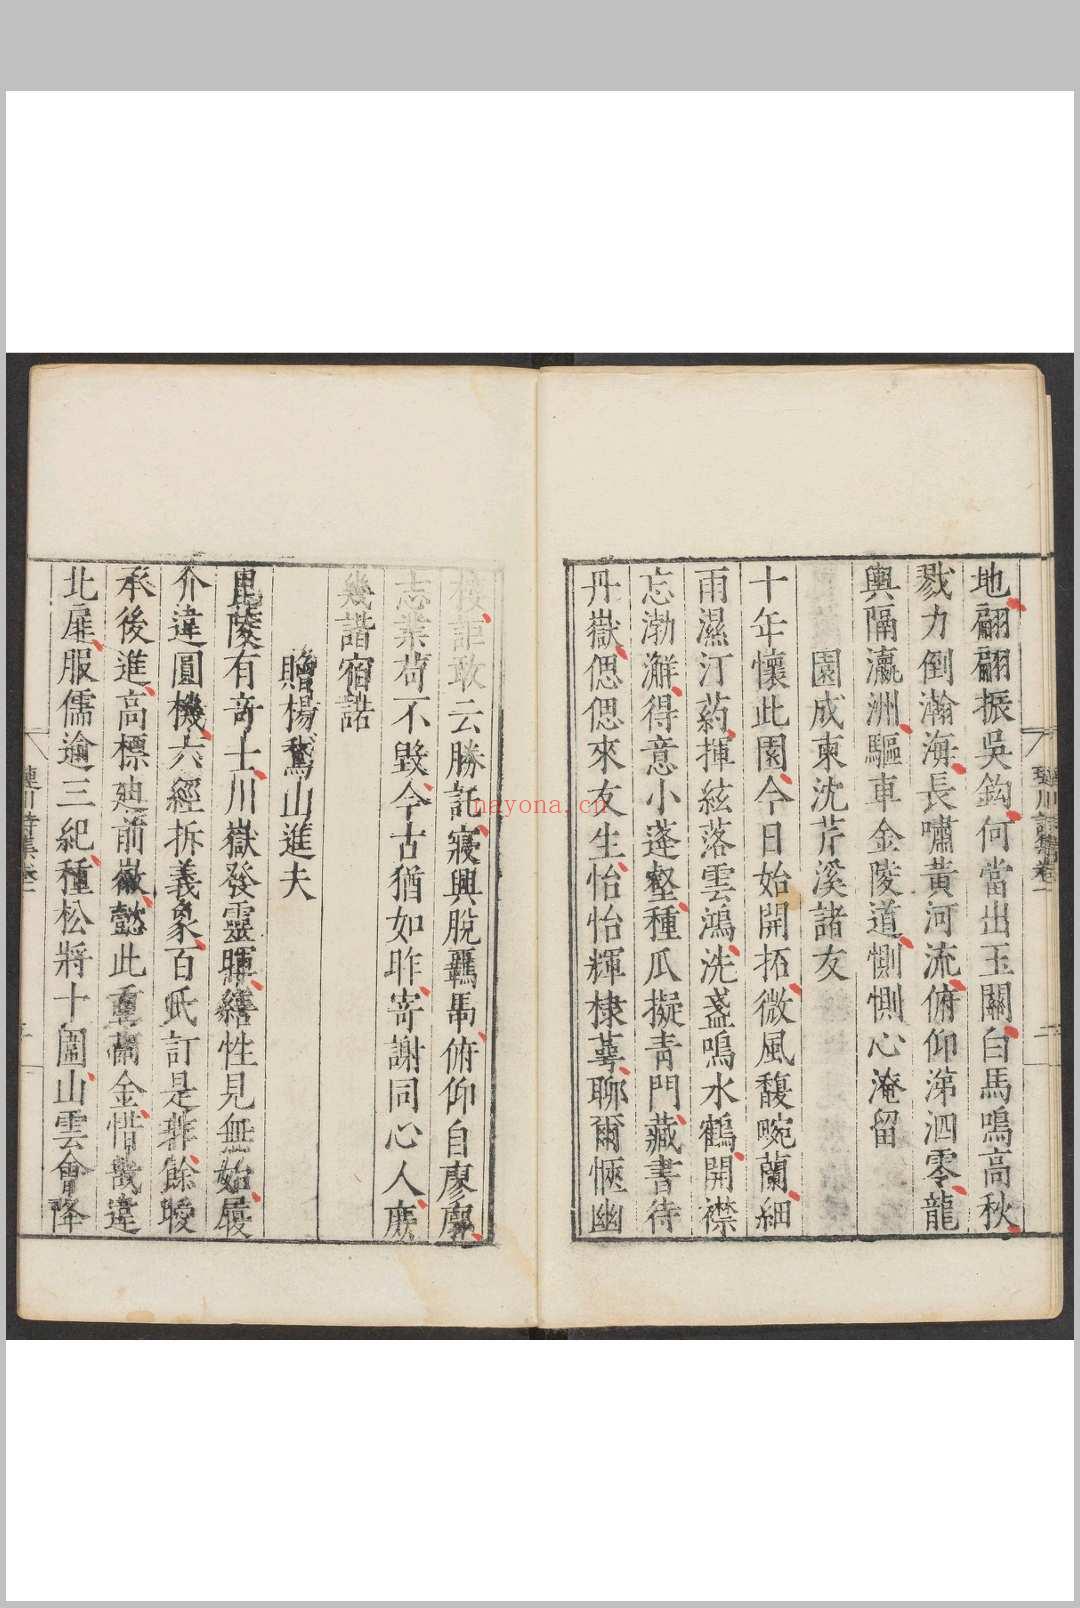 地翩翩振吳鈎何當出玉關白馬鳴高秋
戮力倒瀚海長嘯黃河流俯仰涕泗零龍
輿隔瀛洲驅車金陵道惻惻心淹留
園成柬沈芹溪諸友
十年懷此園今日始開拓微風馥畹蘭細
雨濕汀葯揮絃落雲鴻洗盞鳴水鶴開襟
忘渤澥得意小蓬壑種瓜擬青門藏書待
丹嶽偲偲來友生怡怡輝棣萼聊爾愜幽
詎敢云勝託寢興脫羈馽俯仰自廖廓
志業苟不毀今古猶如昨寄謝同心人庶
幾諧宿諾
贈楊鶩山進夫
毘陵有奇士川嶽發靈暉繕性見無始履
介違圓機六經拆義象百氏訂是非餘曖
承後進高標廸前徽懿此重蘭金惜哉違
北扉服儒逾三紀種松將十圍山雲會降
璉川詩集卷一
二
nayona.cn